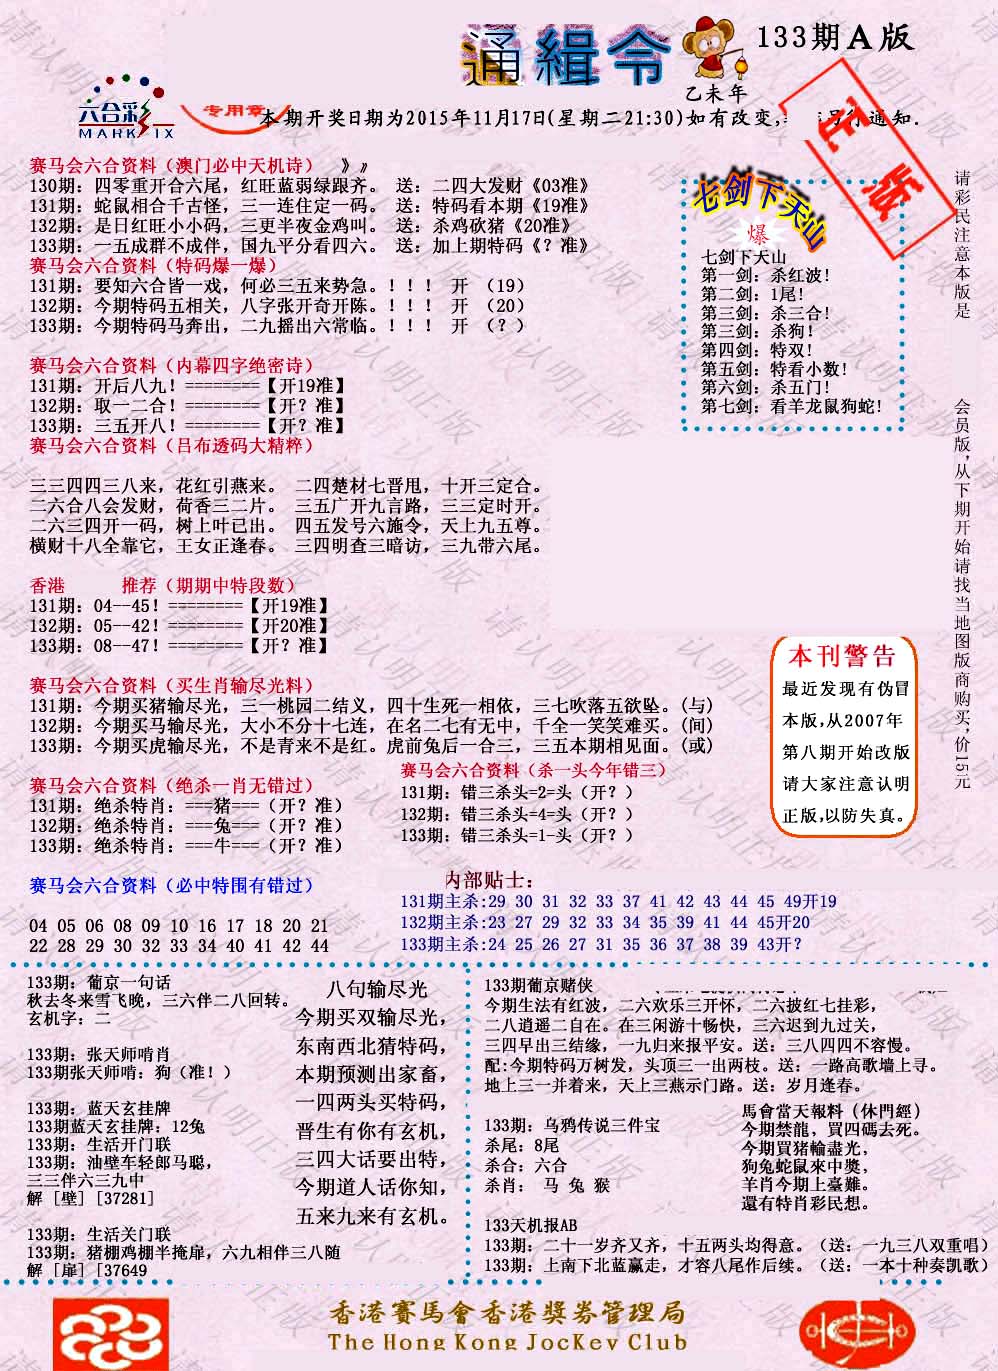 通緝令
133期A版
乙未年
六合彩
MARK SIX
专用章
本期开奖日期为2015年11月17日(星期二21:30)如有改变,
通知.
正版
赛马会六合资料（澳门必中天机诗） 》》
130期：四零重开合六尾，红旺蓝弱绿跟齐。 送：二四大发财《03准》
131期：蛇鼠相合千古怪，三一连住定一码。 送：特码看本期《19准》
132期：是日红旺小小码，三更半夜金鸡叫。 送：杀鸡砍猪《20准》
133期：一五成群不成伴，国九平分看四六。 送：加上期特码《？准》
赛马会六合资料（特码爆一爆）
131期：要知六合皆一戏，何必三五来势急。！！！ 开 （19）
132期：今期特码五相关，八字张开奇开陈。！！！ 开 （20）
133期：今期特码马奔出，二九摇出六常临。！！！ 开 （？）
赛马会六合资料（内幕四字绝密诗）
131期：开后八九！========【开19准】
132期：取一二合！========【开？准】
133期：三五开八！========【开？准】
赛马会六合资料（吕布透码大精粹）
三三四四三八来，花红引燕来。 二四楚材七晋甩，十开三定合。
二六合八会发财，荷香三二片。 三五广开九言路，三三定时开。
二六三四开一码，树上叶已出。 四五发号六施令，天上九五尊。
横财十八全靠它，王女正逢春。 三四明查三暗访，三九带六尾。
香港 推荐（期期中特段数）
131期：04--45！========【开19准】
132期：05--42！========【开20准】
133期：08--47！========【开？准】
赛马会六合资料（买生肖输尽光料）
131期：今期买猪输尽光，三一桃园二结义，四十生死一相依，三七吹落五欲坠。(与)
132期：今期买马输尽光，大小不分十七连，在名二七有无中，千全一笑笑难买。(间)
133期：今期买虎输尽光，不是青来不是红。虎前兔后一合三，三五本期相见面。(或)
赛马会六合资料（绝杀一肖无错过）
131期：绝杀特肖：===猪===（开？准）
132期：绝杀特肖：===兔===（开？准）
133期：绝杀特肖：===牛===（开？准）
赛马会六合资料（杀一头今年错三）
131期：错三杀头=2=头（开？）
132期：错三杀头=4=头（开？）
133期：错三杀头=1-头（开？）
赛马会六合资料（必中特围有错过）
04 05 06 08 09 10 16 17 18 20 21
22 28 29 30 32 33 34 40 41 42 44
内部贴士：
131期主杀:29 30 31 32 33 37 41 42 43 44 45 49开19
132期主杀:23 27 29 32 33 34 35 39 41 44 45开20
133期主杀:24 25 26 27 31 35 36 37 38 39 43开？
七剑下天山
爆
七剑下天山
第一剑：杀红波！
第二剑：1尾！
第三剑：杀三合！
第三剑：杀狗！
第四剑：特双！
第五剑：特看小数！
第六剑：杀五门！
第七剑：看羊龙鼠狗蛇！
请彩民注意本版是
会员版,从下期开始请找当地图版商购买,价15元
本刊警告
最近发现有伪冒
本版,从2007年
第八期开始改版
请大家注意认明
正版,以防失真。
133期：葡京一句话
秋去冬来雪飞晚，三六伴二八回转。
玄机字：二
133期：张天师啃肖
133期张天师啃：狗（准！）
133期：蓝天玄挂牌
133期蓝天玄挂牌：12兔
133期：生活开门联
133期：油壁车轻郎马聪，
三三伴六三九中
解 [壁] [37281]
133期：生活关门联
133期：猪棚鸡棚半掩扉，六九相伴三八随
解 [扉] [37649
八句输尽光
今期买双输尽光，
东南西北猜特码，
本期预测出家畜，
一四两头买特码，
晋生有你有玄机，
三四大话要出特，
今期道人话你知，
五来九来有玄机。
133期葡京赌侠
今期生法有红波，二六欢乐三开怀，二六披红七挂彩，
二八逍遥二自在。在三闲游十畅快，三六迟到九过关，
三四早出三结缘，一九归来报平安。送：三八四四不容慢。
配:今期特码万树发，头顶三一出两枝。送：一路高歌墙上寻。
地上三一并着来，天上三燕示门路。送：岁月逢春。
133期：乌鸦传说三件宝
杀尾：8尾
杀合：六合
杀肖： 马 兔 猴
馬會當天報料（休門經）
今期禁龍，買四碼去死。
今期買猪輸盡光，
狗兔蛇鼠來中獎，
羊肖今期上臺難。
還有特肖彩民想。
133天机报AB
133期：二十一岁齐又齐，十五两头均得意。（送：一九三八双重唱）
133期：上南下北蓝赢走，才容八尾作后续。（送：一本十种奏凯歌）
香港賽馬會香港獎券管理局
The Hong Kong Jockey Club